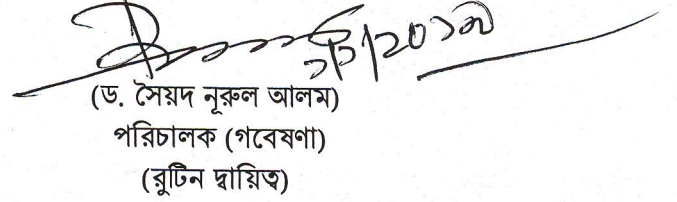 (ড. সৈয়দ নূরুল আলম)
পরিচালক (গবেষণা)
(রুটিন দ্বায়িত্ব)